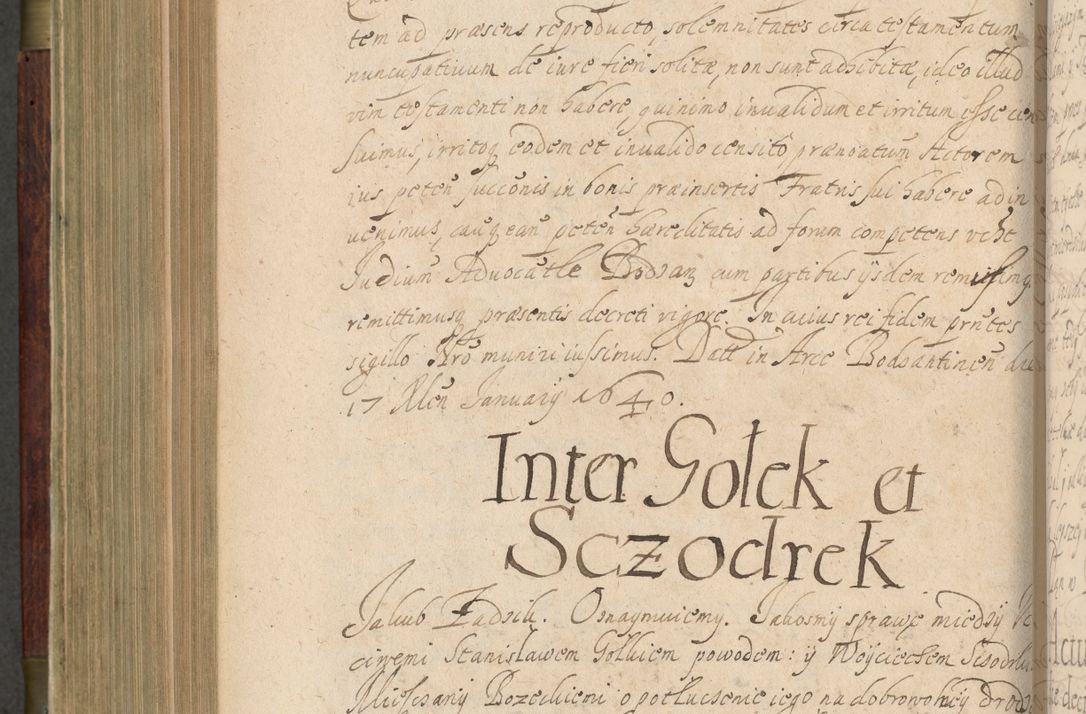 tem ad præsens reproducto, solemnitates circa testamentum
nuncupatiuum de iure fieri solitæ, non sunt adhibitæ, ideo illud
vim testamenti non habere, quinimo inualidum et irritum esse cen
suimus, irritoq eodem et inualido censito prænoatum Actorem
ius peten succonis in bonis præinsertis Fratris sui habere adin
uenimus, eam peten hæreditatis ad forum competens vthe
Judium Aduocatle Bodzan cum partibus ijsdem remissimq
remittimusq præsentis decreti vigore. In cuius rei fidem prntes
sigillo Nro muniri iussimus. Datt in Arce Bodsantinen die
17 Men January 1640.
Inter Golek et
Sczodrek
Jakub Zadzik. Oznaymuiemy. Jakosmy sprawę miedzÿ
ciwemi Stanisławem Gołkiem powodem: ÿ Woyciechem
Miesczany Bozeckiemi o potłuczenie iego na dobrowolney